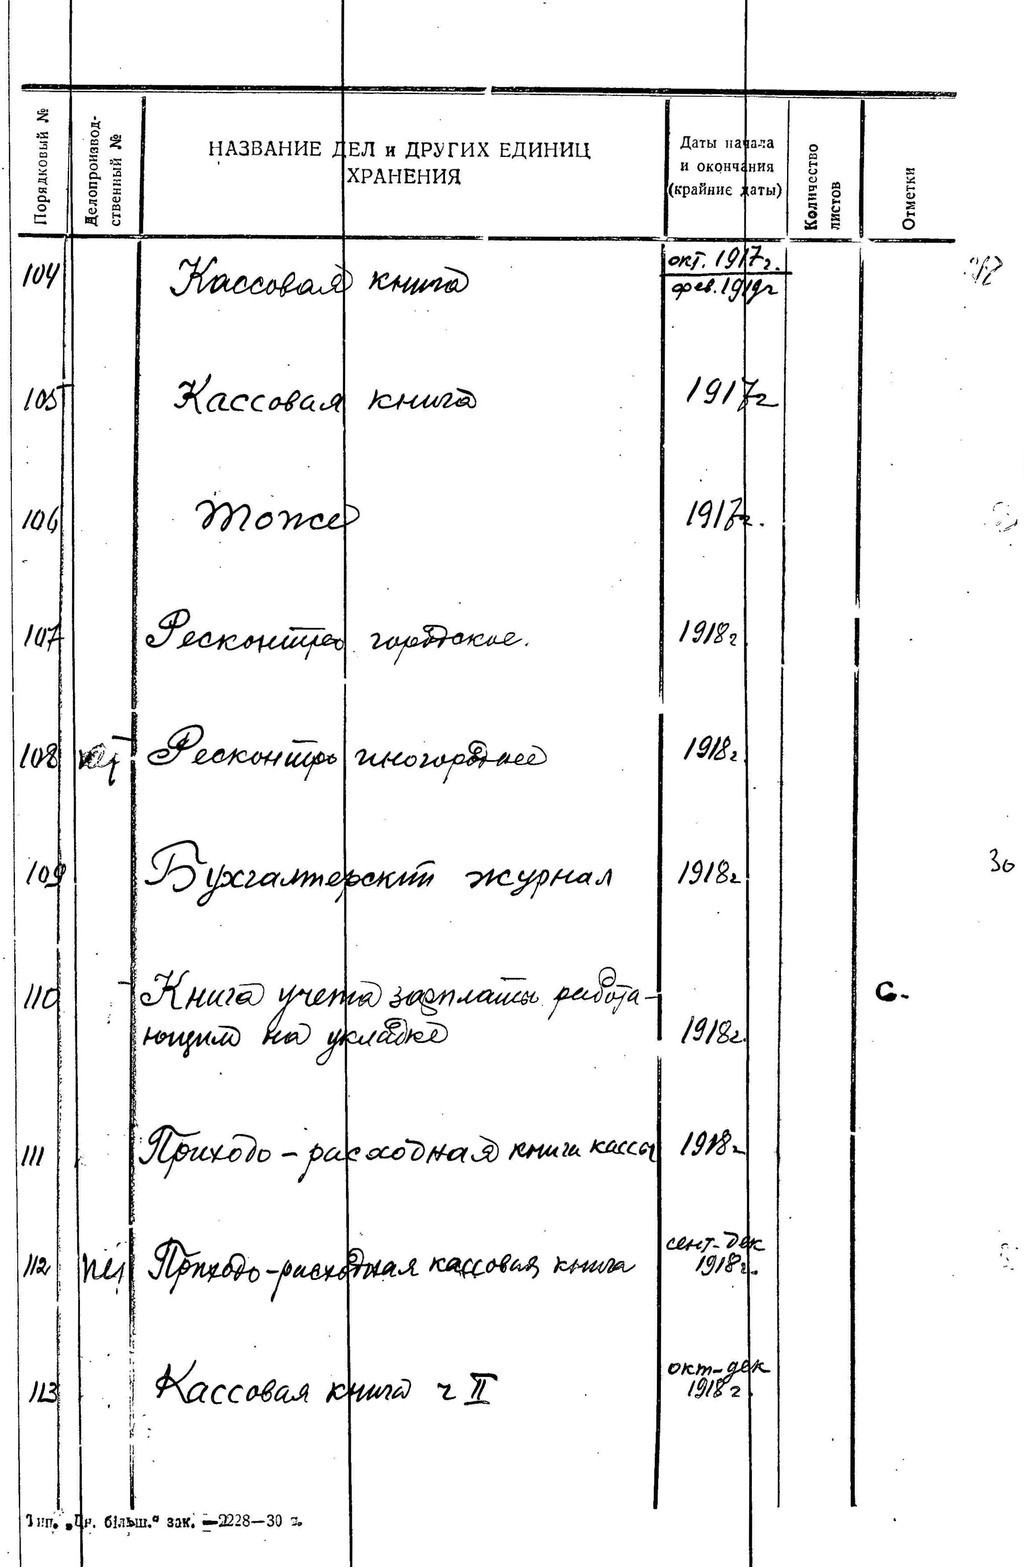 Порядковый №
Делопроизвод-
ственный №
НАЗВАНИЕ ДЕЛ и ДРУГИХ ЕДИНИЦ
ХРАНЕНИЯ
Даты начала
и окончания
(крайние даты)
Количество
листов
Отметки
104 Кассовая книга окт. 1917г.
фев. 1919г
105 Кассовая книга 1917г
106 Тоже 1917г.
107 Ресконтро городское. 1918г
108 нет Ресконтро иногороднее 1918г.
109 Бухгалтерский журнал 1918г 30
110 Книга учета зарплаты работа-
ющим на укладке 1918г. С.
111 Приходо-расходная книга кассы 1918г
112 нет Приходо-расходная кассовая книга сент-дек
1918г.
113 Кассовая книга ч II окт-дек
1918г
Тип. „Дн. більш.“ зак. —2228—30 г.